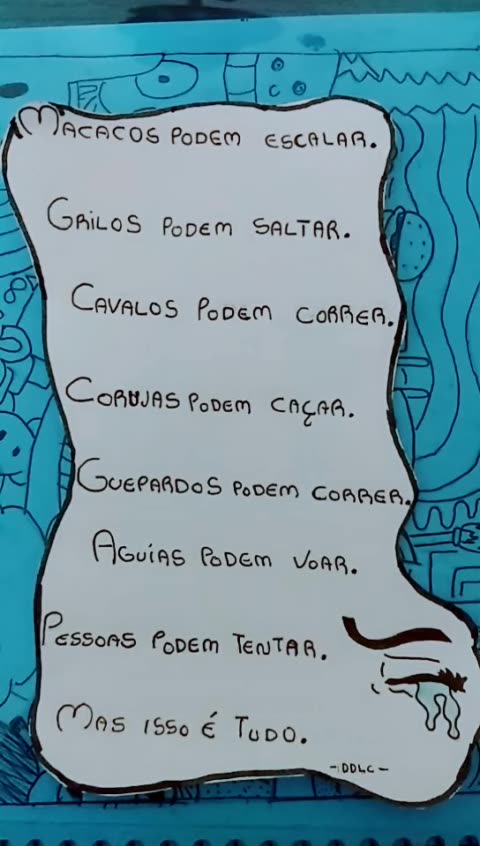 Macacos podem escalar.
Grilos podem saltar.
Cavalos podem correr.
Corujas podem caçar.
Guepardos podem correr.
Aguías podem voar.
Pessoas podem tentar.
Mas isso é tudo.
-DDLC-